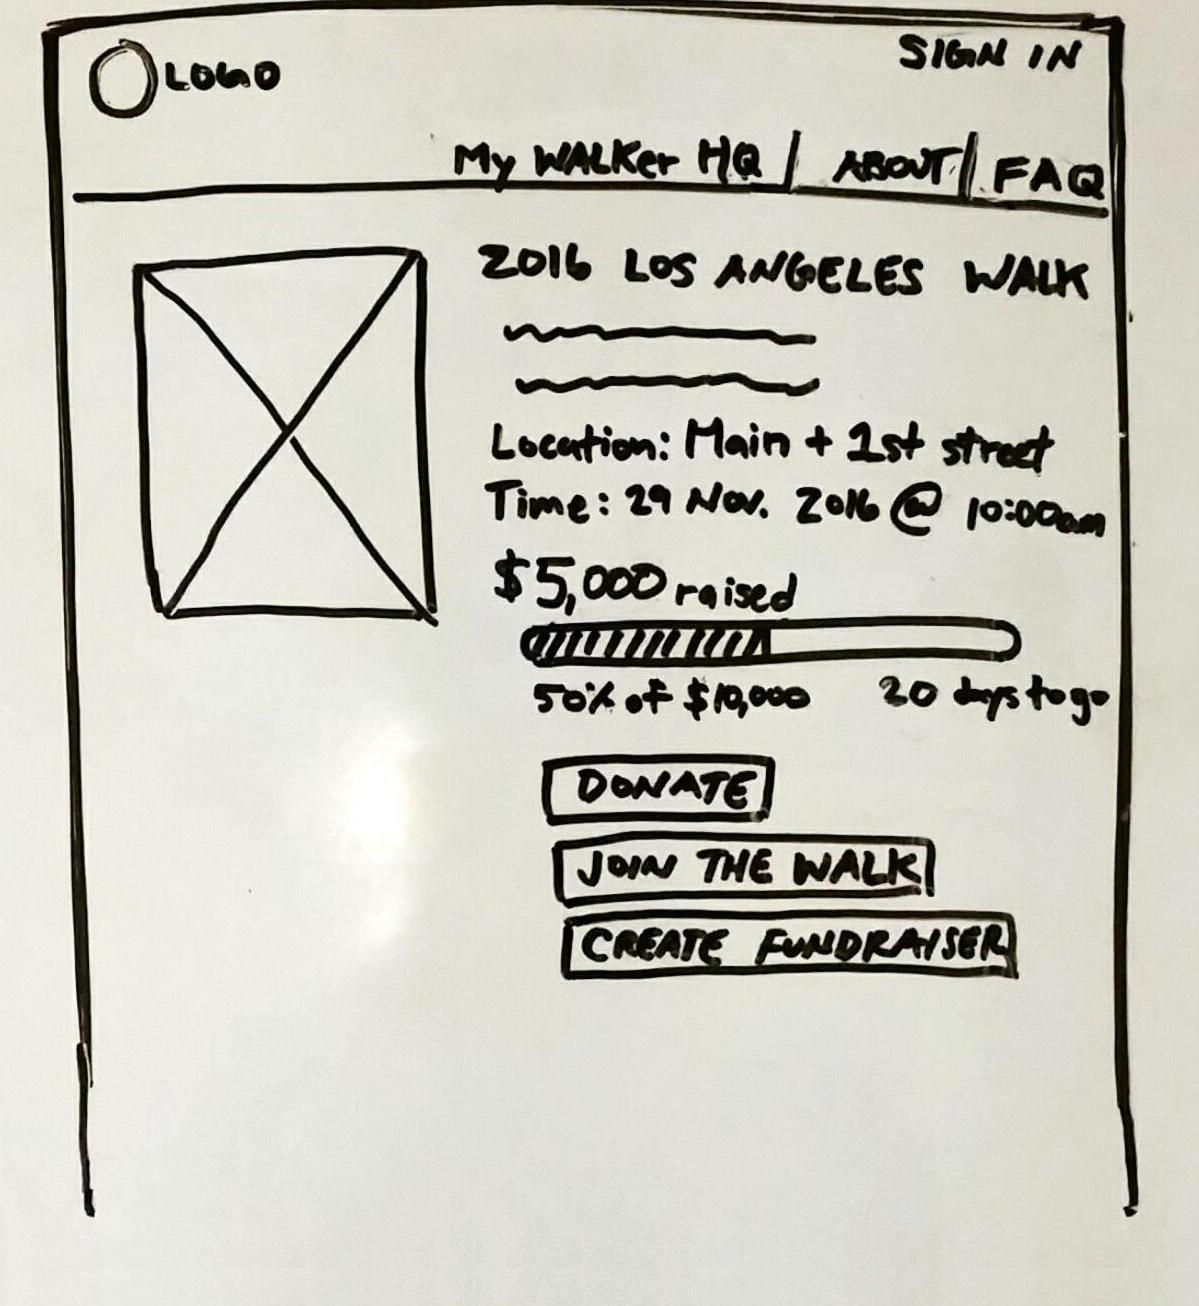 LOGO
SIGN IN
My WALKer HQ | ABOUT | FAQ
2016 LOS ANGELES WALK
Location: Main + 1st street
Time: 29 Nov. 2016 @ 10:00am
$5,000 raised
50% of $10,000 20 days to go
DONATE
JOIN THE WALK
CREATE FUNDRAISER